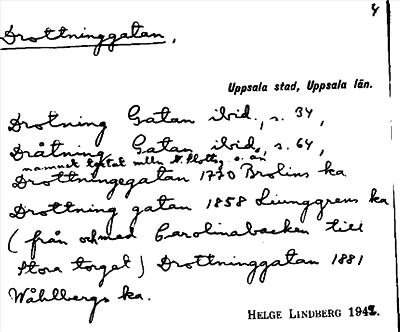 4
Drottninggatan,
Uppsala stad, Uppsala län.
Drotning Gatan ibid., s. 34,
Dråtning Gatan ibid., s. 64,
namnet textat mellan S. Slottsg. o. ån
Drottningegatan 1770 Brolins ka
Drottning gatan 1858 Ljunggrens ka
(från och med Carolinabacken till
Stora torget) Drottninggatan 1881
Wåhlbergs ka.
HELGE LINDBERG 1942.